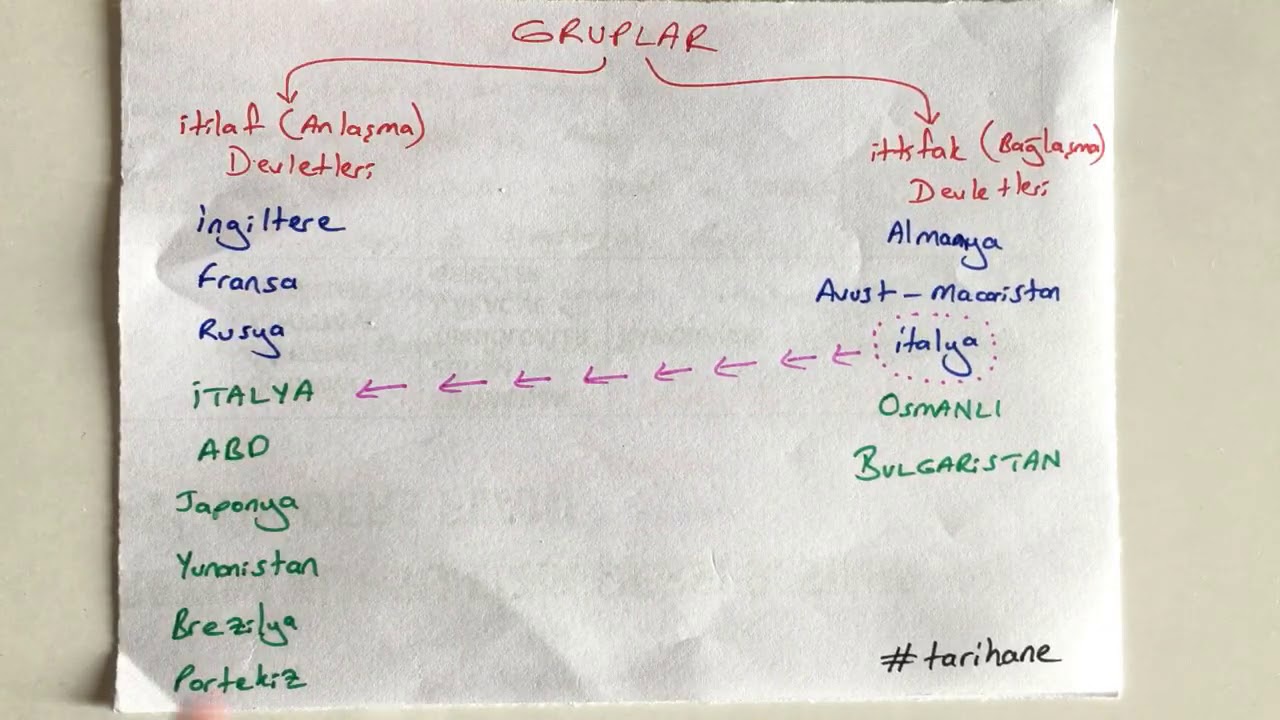 GRUPLAR
itilaf (Anlaşma)
Devletleri
ingiltere
Fransa
Rusya
iTALYA
ABD
Japonya
Yunanistan
Brezilya
Portekiz
ittifak (Bağlaşma)
Devletleri
Almanya
Avust - Macaristan
italya
OSMANLI
BULGARiSTAN
#tarihane